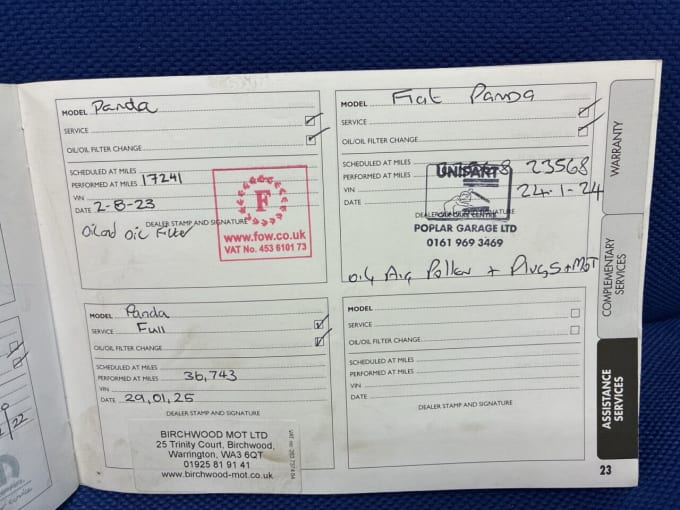 MODEL Panda
SERVICE
OIL/OIL FILTER CHANGE
SCHEDULED AT MILES
PERFORMED AT MILES 17241
VIN
DATE 2-8-23
DEALER STAMP AND SIGNATURE
Oil and Oil Filter
F
www.fow.co.uk
VAT No. 453 6101 73
MODEL Fiat Panda
SERVICE
OIL/OIL FILTER CHANGE
SCHEDULED AT MILES
PERFORMED AT MILES 23568
VIN 24-1-24
DATE
UNISART
POPLAR GARAGE LTD
0161 969 3469
Oil, Air, Pollen + Plugs + MOT
MODEL Panda
SERVICE Full
OIL/OIL FILTER CHANGE
SCHEDULED AT MILES
PERFORMED AT MILES 36,743
VIN
DATE 29,01,25
DEALER STAMP AND SIGNATURE
BIRCHWOOD MOT LTD
25 Trinity Court, Birchwood,
Warrington, WA3 6QT
01925 81 91 41
www.birchwood-mot.co.uk
MODEL
SERVICE
OIL/OIL FILTER CHANGE
SCHEDULED AT MILES
PERFORMED AT MILES
VIN
DATE
DEALER STAMP AND SIGNATURE
WARRANTY
COMPLEMENTARY
SERVICES
ASSISTANCE
SERVICES
23